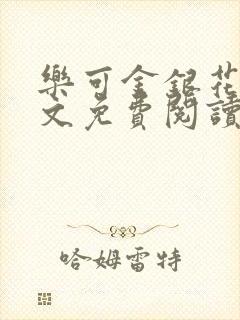 樂可金銀花
文免費閱讀
哈姆雷特